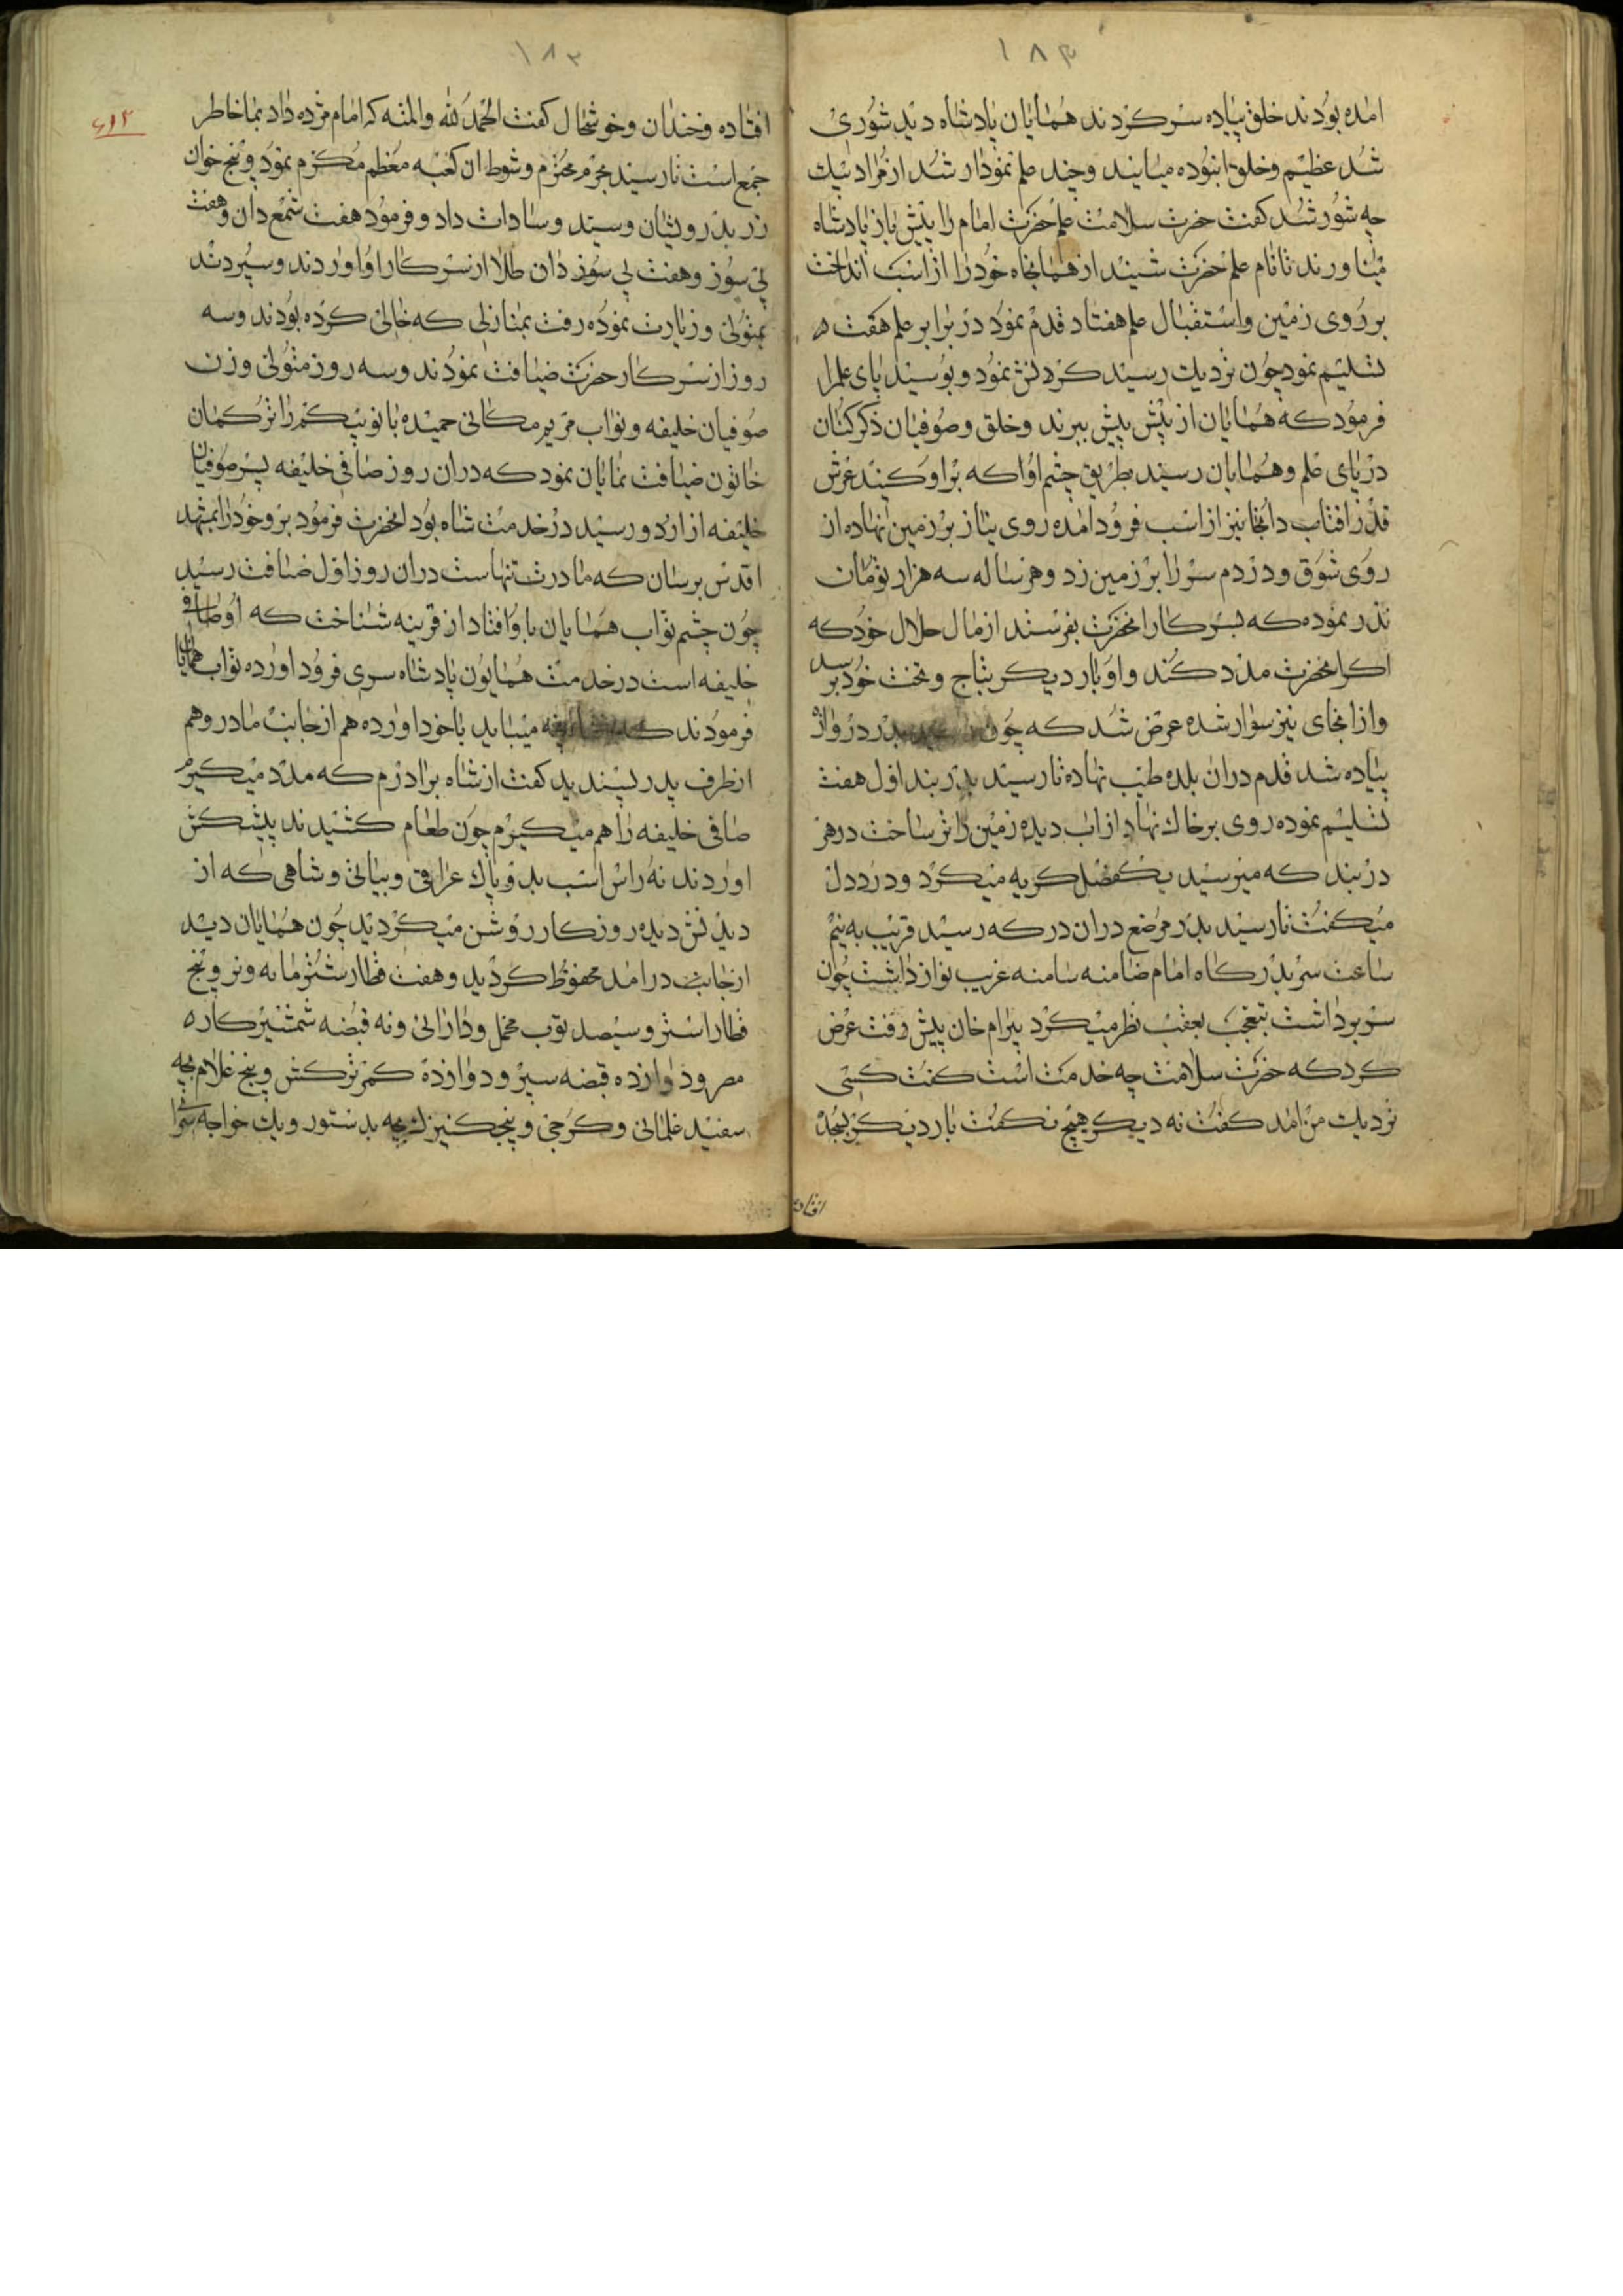 ١٨٣
امده بودند خلق پیاده سر کردند همایان پادشاه دید شوری
شد عظیم و خلق انبوده میایند و چند علم نمودار شد از مراد بیك
چه شور شد کفت حضرت سلامت علم حضرت امام را پیش باز پادشاه
میاورند تا نام علم حضرت شنید از همانجاه خود را از اسب انداخت
بر روی زمین و استقبال علم هفتاد قدم نمود در برابر علم هفت
تسلیم نمود چون نزدیك رسید کردنش نمود و بوسید پای علم را
فرمود که همایان از پیش پیش ببرند و خلق و صوفیان ذکر کنان
در پای علم و همایان رسید بطریق چشم او که بر او
قدر افتاب دانجا نیز از اسب فرود امده روی نیاز بر زمین نهاده از
روی شوق و درد دم سر را بر زمین زد و هر ساله سه هزار تومان
نذر نموده که بسرکار انحضرت بفرستد از مال حلال خود که
اکر انحضرت مدد کند و او بار دیکر بتاج و تخت خود برسد
و از انجای نیز سوار شده عرض شد که چون بدر دروازه
پیاده شد قدم دران بلده طیب نهاده تا رسید بدربند اول هفت
تسلیم نموده روی بر خاك نهاد از اب دیده زمین را تر ساخت در هر
دربند که میرسید یکفصل کریه میکرد و درد دل
میکفت تا رسید بدر موضع دران درکه رسید قریب به نیم
ساعت سر بدرکاه امام ضامنه سامنه غریب نواز داشت چون
سر برداشت بتعجب بعقب نظر میکرد بیرام خان پیش رفت عرض
کرد که حضرت سلامت چه خدمت است کفت کسی
نزدیك من امد کفت نه دیکر هیچ نکفت بار دیکر بسجده
افتاده
١٨٣
افتاده و خندان و خوشحال کفت الحمد لله والمنه که امام مژده داد بما خاطر
جمع است تا رسید بحرم محترم و شوط ان کعبه معظم مکرم نمود و پنج خوان
زر بدرویشان و سید و سادات داد و فرمود هفت شمع دان و هفت
پی سوز و هفت پی سوز دان طلا از سرکار او اوردند و سپردند
بمتولی و زیارت نموده رفت بمنازلی که خالی کرده بودند و سه
روز از سرکار حضرت ضیافت نمودند و سه روز متولی و زن
صوفیان خلیفه و نواب مریم مکانی حمیده بانو بیکم را ترکمان
خاتون ضیافت نمایان نمود که دران روز صافی خلیفه پسر صوفیان
خلیفه از اردو رسید در خدمت شاه بود انحضرت فرمود برو خود را بمشهد
اقدس برسان که مادرت تنهاست دران روز اول ضیافت رسید
چون چشم نواب همایان باو افتاد از قرینه شناخت که او صافی
خلیفه است در خدمت همایون پادشاه سری فرود اورده نواب همایان
فرمودند که میباید با خود اورده هم از جانب مادر و هم
از طرف پدر کفت از شاه برادرم که مدد میکیرم
صافی خلیفه را هم میکیرم چون طعام کشیدند پیشکش
اوردند نه راس اسب بدوپاك عراقی و بیاتی و شاهی که از
دیدنش دیده روزکار روشن میکردید چون همایان دید
از جانب درامد محفوظ کردید و هفت قطار شتر مایه و نر و پنج
قطار استر و سیصد توب مخمل و دارائی و نه قبضه شمشیر کاره
مصر و دوازده قبضه سپر و دوازده کمر ترکش و پنج غلام بچه
سفید غلمانی و کرجی و پنج کنیزك بچه بدستور و یك خواجه سرا